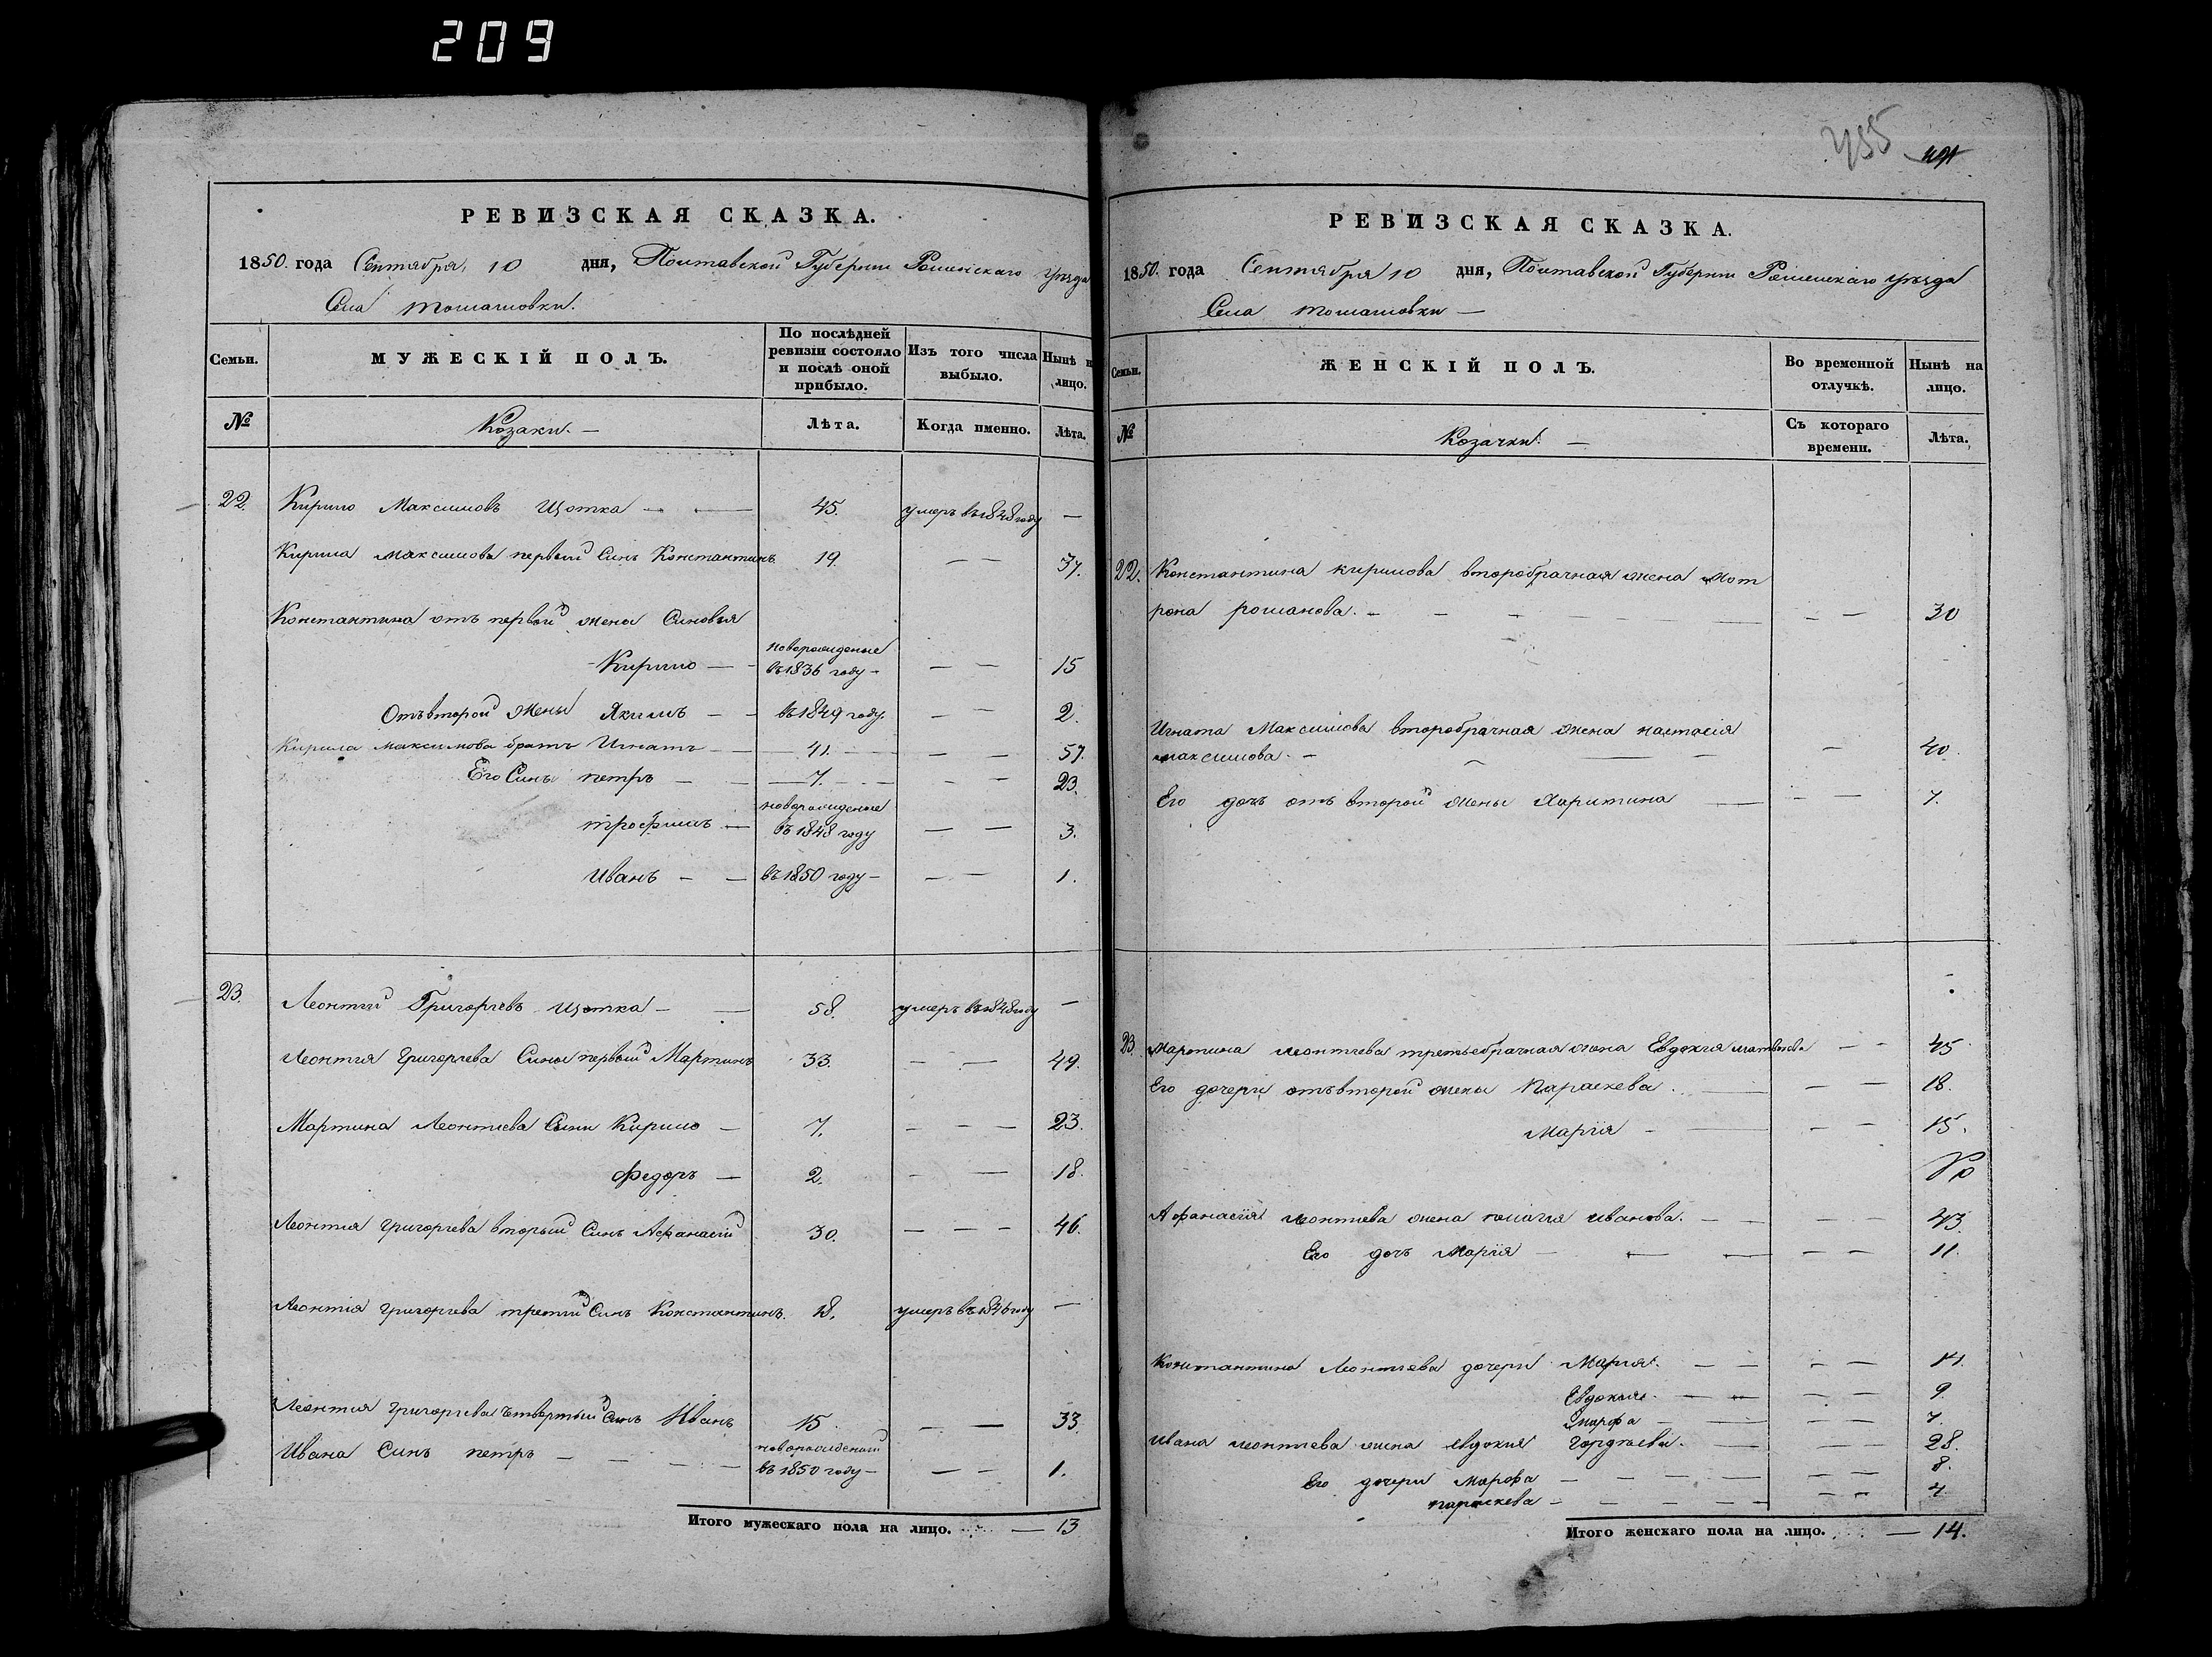 209
РЕВИЗСКАЯ СКАЗКА.
1850. года Сентября 10 дня, Полтавской Губернии Роменскаго уѣзда
Села Томашовки.
Семьи. МУЖЕСКІЙ ПОЛЪ. По послѣдней ревизіи состояло и послѣ оной прибыло. Изъ того числа выбыло. Нынѣ н лицо.
№ Козаки. — Лѣта. Когда именно. Лѣта.
22. Кирило Максимовъ Щотка — — 45. умеръ въ 1848 году —
Кирила Максимова первый Синъ Константинъ 19. — — 37.
Константина отъ первой жены Синовья
Кирило — — новорожденые въ 1836 году — — — 15
Отъ второй жены Якимъ — — въ 1849 году. — — 2.
Кирила Максимова братъ Игнатъ — 41. — — 57.
Его Синъ петръ — — 7. — — 23.
трофимъ — новорожденые въ 1848 году — — 3.
Иванъ — — въ 1850 году — — — 1.
23. Леонтий Григорьевъ Щотка — — 58. умеръ въ 1848 году —
Леонтия Григорьева Сины первый Мартинъ 33. — — 49.
Мартина Леонтиева Сини Кирило — 7. — — — 23.
Федоръ — 2. — — 18.
Леонтия Григорьева вторый Синъ Афанасій 30. — — — 46.
Леонтія Григорьева третий Синъ Константинъ. 18. умеръ въ 1846 году —
Леонтия Григорьева Четвертый Синъ Иванъ 15. — — 33.
Ивана Синъ петръ — — — — новорожденый въ 1850 году — — — 1.
Итого мужескаго пола на лицо. — 13
455
РЕВИЗСКАЯ СКАЗКА.
1850. года Сентября 10 дня, Полтавской Губернии Роменскаго уѣзда
Села Томашовки —
Семьи. ЖЕНСКІЙ ПОЛЪ. Во временной отлучкѣ. Нынѣ на лицо.
№ Козачки. — Съ котораго времени. Лѣта.
22. Константина кирилова второбрачная жена Мот
рона романова. — — — — — — 30
Игната Максимова второбрачная жена настасія
максимова. — — — — 40.
Его дочь отъ второй жены Харитина — — — 7.
23. Мартина леонтиева третьебрачная жена Евдокия матвеева — — 45
Его дочери отъ второй жены Параскева. — — — 18.
Марія — — — — 15.
Афанасія леонтиева жена ивановa. — — — — 43
Его дочь Марія — — — — — 11.
Константина Леонтиева дочери Мария. — — — — 14.
Евдокия. — — — — 9.
Марфа — — — — 7.
Ивана леонтиева жена евдокия Гордѣева. — — — 28.
Его дочери Марфа — — — — — — 8.
параскева — — — — — — — 4.
Итого женскаго пола на лицо. — 14.